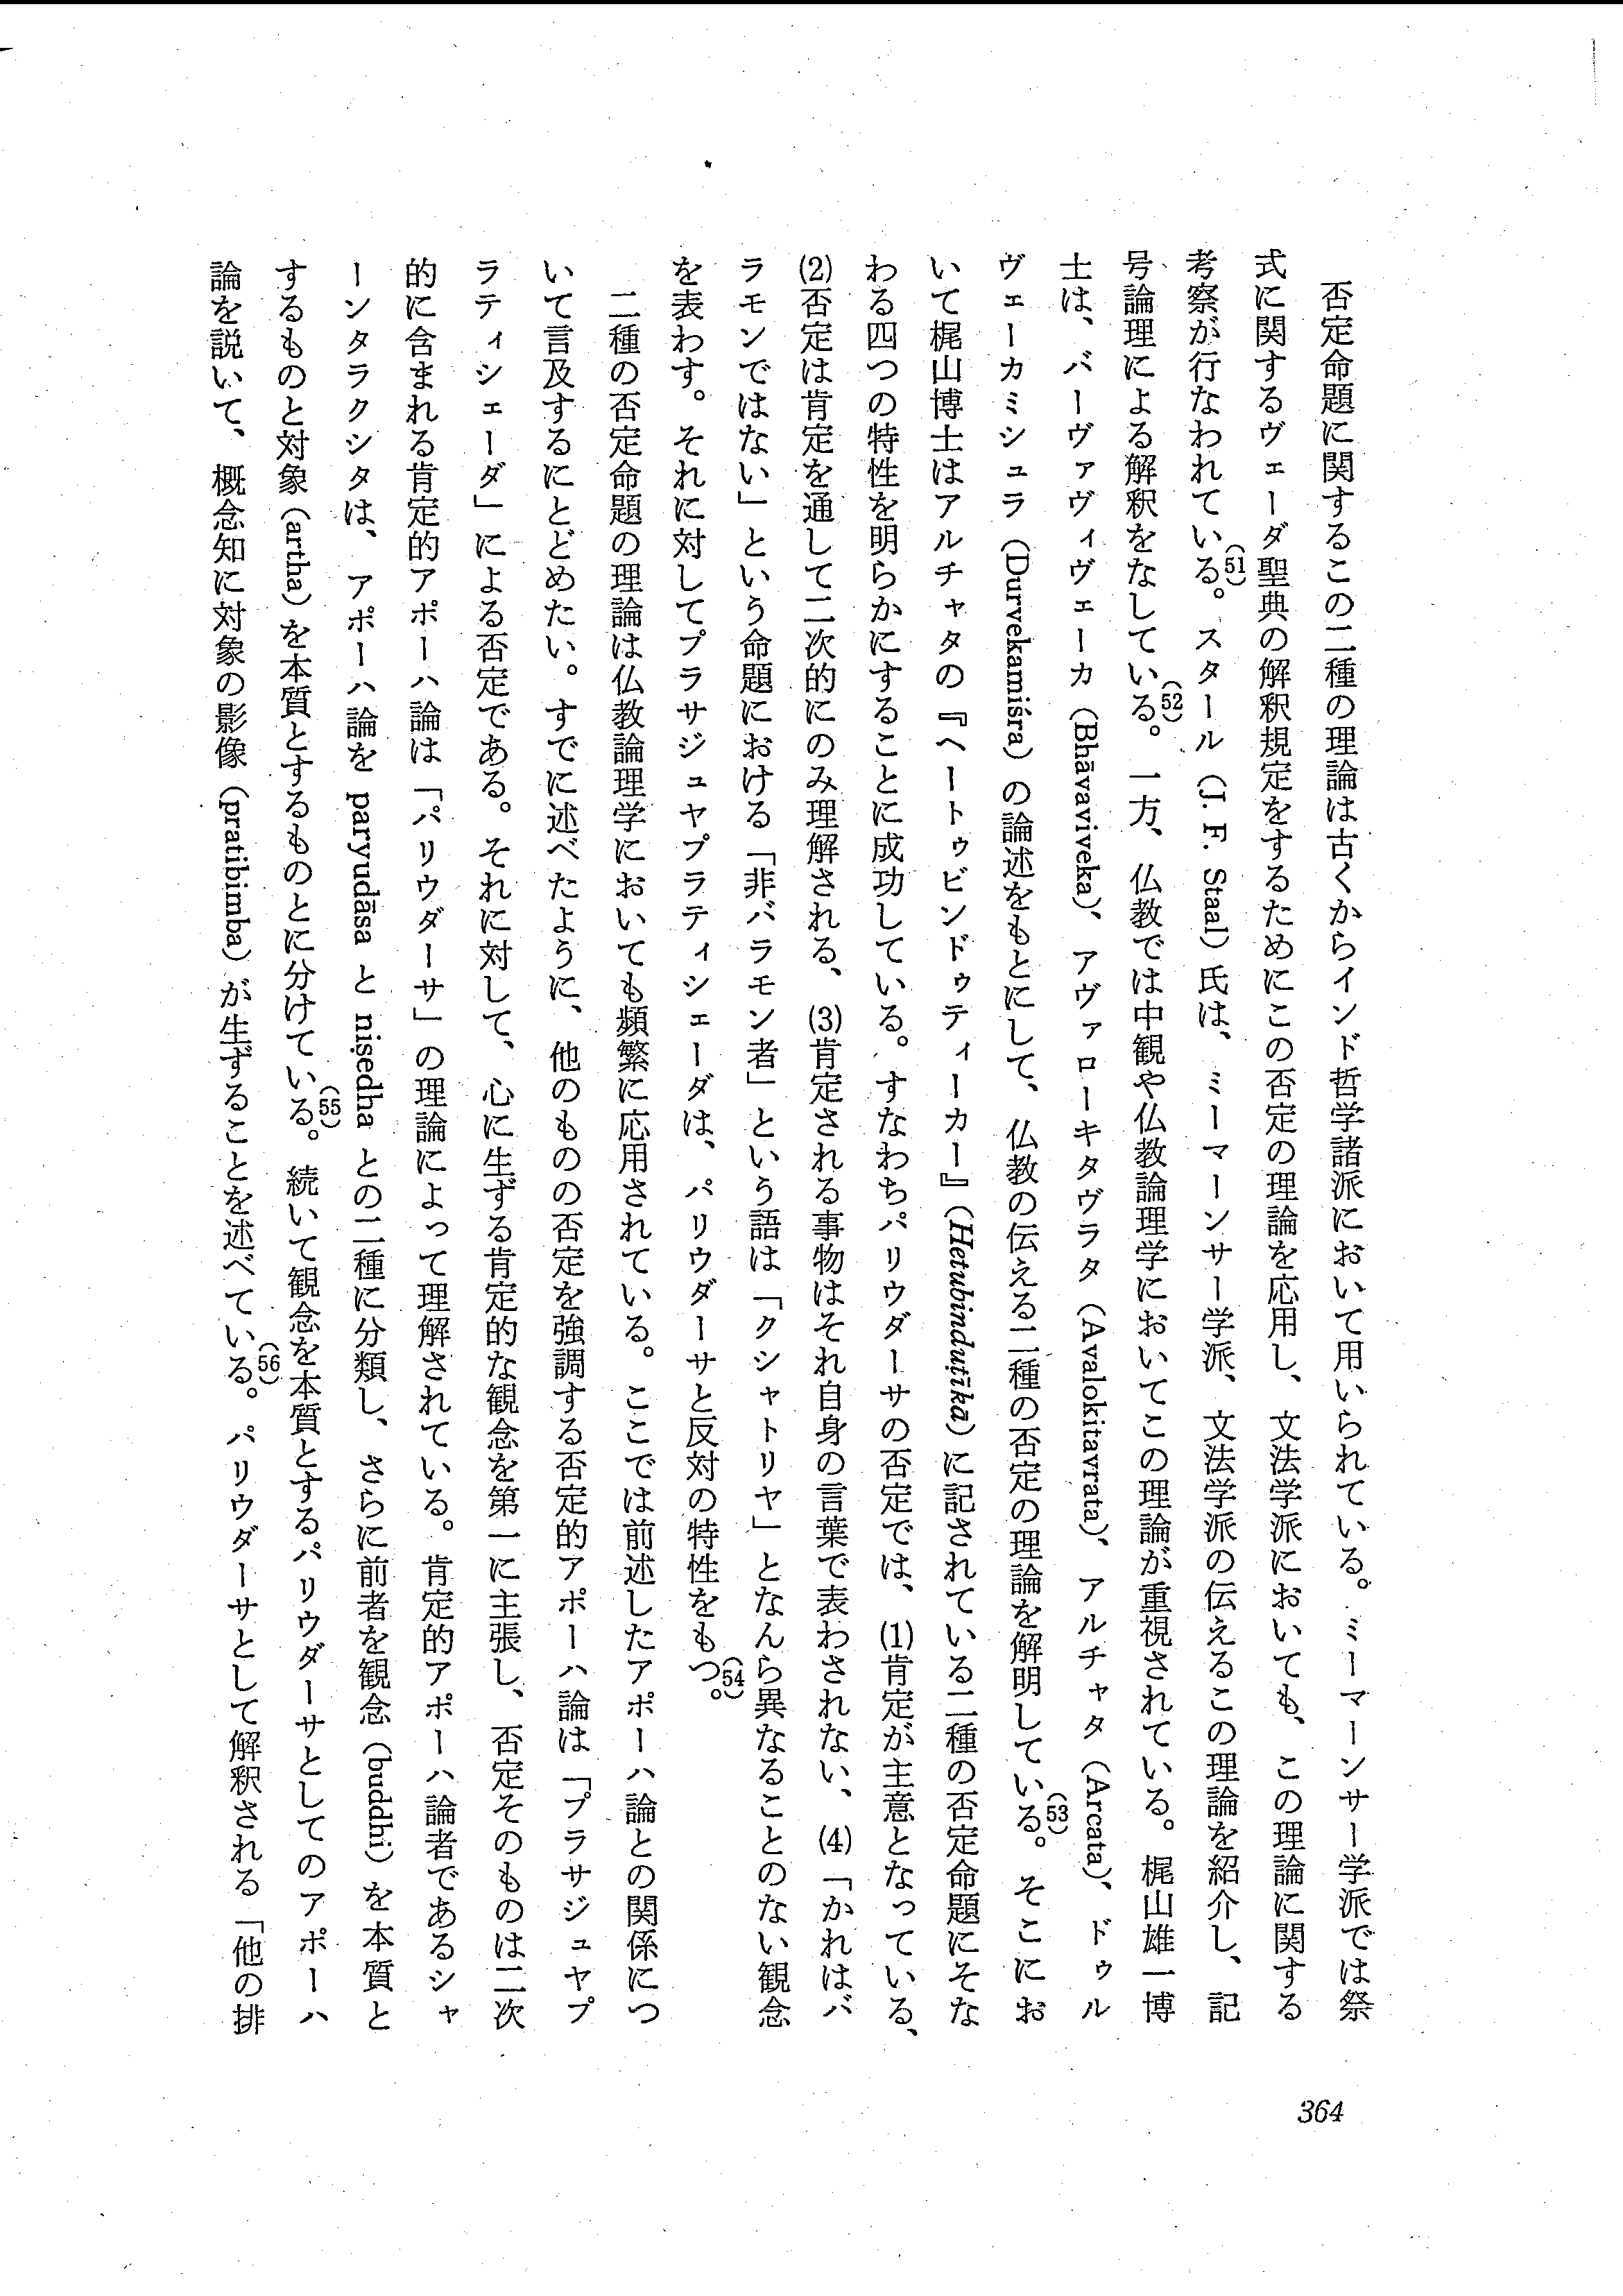 否定命題に関するこの二種の理論は古くからインド哲学諸派において用いられている。ミーマーンサー学派では祭
式に関するヴェーダ聖典の解釈規定をするためにこの否定の理論を応用し、文法学派においても、この理論に関する
考察が行なわれている(51)。スタール(J. F. Staal)氏は、ミーマーンサー学派、文法学派の伝えるこの理論を紹介し、記
号論理による解釈をなしている(52)。一方、仏教では中観や仏教論理学においてこの理論が重視されている。梶山雄一博
士は、バーヴァヴィヴェーカ(Bhāvaviveka)、アヴァローキタヴラタ(Avalokitavrata)、アルチャタ(Arcata)、ドゥル
ヴェーカミシュラ(Durvekamiśra)の論述をもとにして、仏教の伝える二種の否定の理論を解明している(53)。そこにお
いて梶山博士はアルチャタの『ヘートゥビンドゥティーカー』(Hetubinduṭīkā)に記されている二種の否定命題にそな
わる四つの特性を明らかにすることに成功している。すなわちパリウダーサの否定では、(1)肯定が主意となっている、
(2)否定は肯定を通して二次的にのみ理解される、(3)肯定される事物はそれ自身の言葉で表わされない、(4)「かれはバ
ラモンではない」という命題における「非バラモン者」という語は「クシャトリヤ」となんら異なることのない観念
を表わす。それに対してプラサジュヤプラティシェーダは、パリウダーサと反対の特性をもつ(54)。
二種の否定命題の理論は仏教論理学においても頻繁に応用されている。ここでは前述したアポーハ論との関係につ
いて言及するにとどめたい。すでに述べたように、他のものの否定を強調する否定的アポーハ論は「プラサジュヤプ
ラティシェーダ」による否定である。それに対して、心に生ずる肯定的な観念を第一に主張し、否定そのものは二次
的に含まれる肯定的アポーハ論は「パリウダーサ」の理論によって理解されている。肯定的アポーハ論者であるシャ
ーンタラクシタは、アポーハ論を paryudāsa と niṣedha との二種に分類し、さらに前者を観念(buddhi)を本質と
するものと対象(artha)を本質とするものとに分けている(55)。続いて観念を本質とするパリウダーサとしてのアポーハ
論を説いて、概念知に対象の影像(pratibimba)が生ずることを述べている(56)。パリウダーサとして解釈される「他の排
364